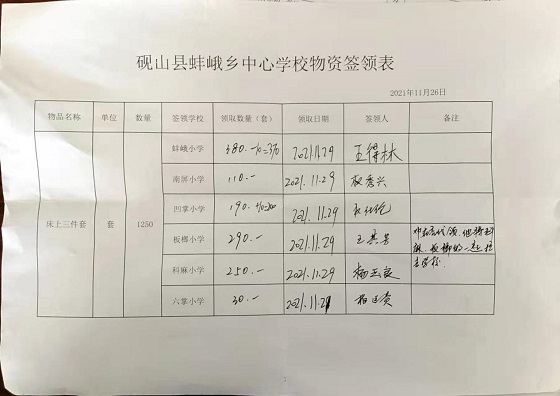 砚山县蚌峨乡中心学校物资签领表
2021年11月26日
物品名称 单位 数量 签领学校 领取数量（套） 领取日期 签领人 备注
床上三件套 套 1250
蚌峨小学 380.-10=370 2021.11.29 王得林
南屏小学 110.- 2021.11.29
凹掌小学 190 2021.11.29
板榔小学 290.- 2021.11.29
科麻小学 250.- 2021.11.29
六掌小学 30.- 2021.11.29